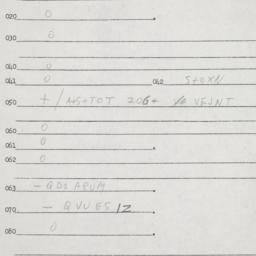 020 0
030 0
040 0
041 0 042 S+OXN
050 +/NS+TOT 206+ VEJNT
060 0
061 0
062 0
063 - QDS ARUM
070 - QVVES 12
080 0